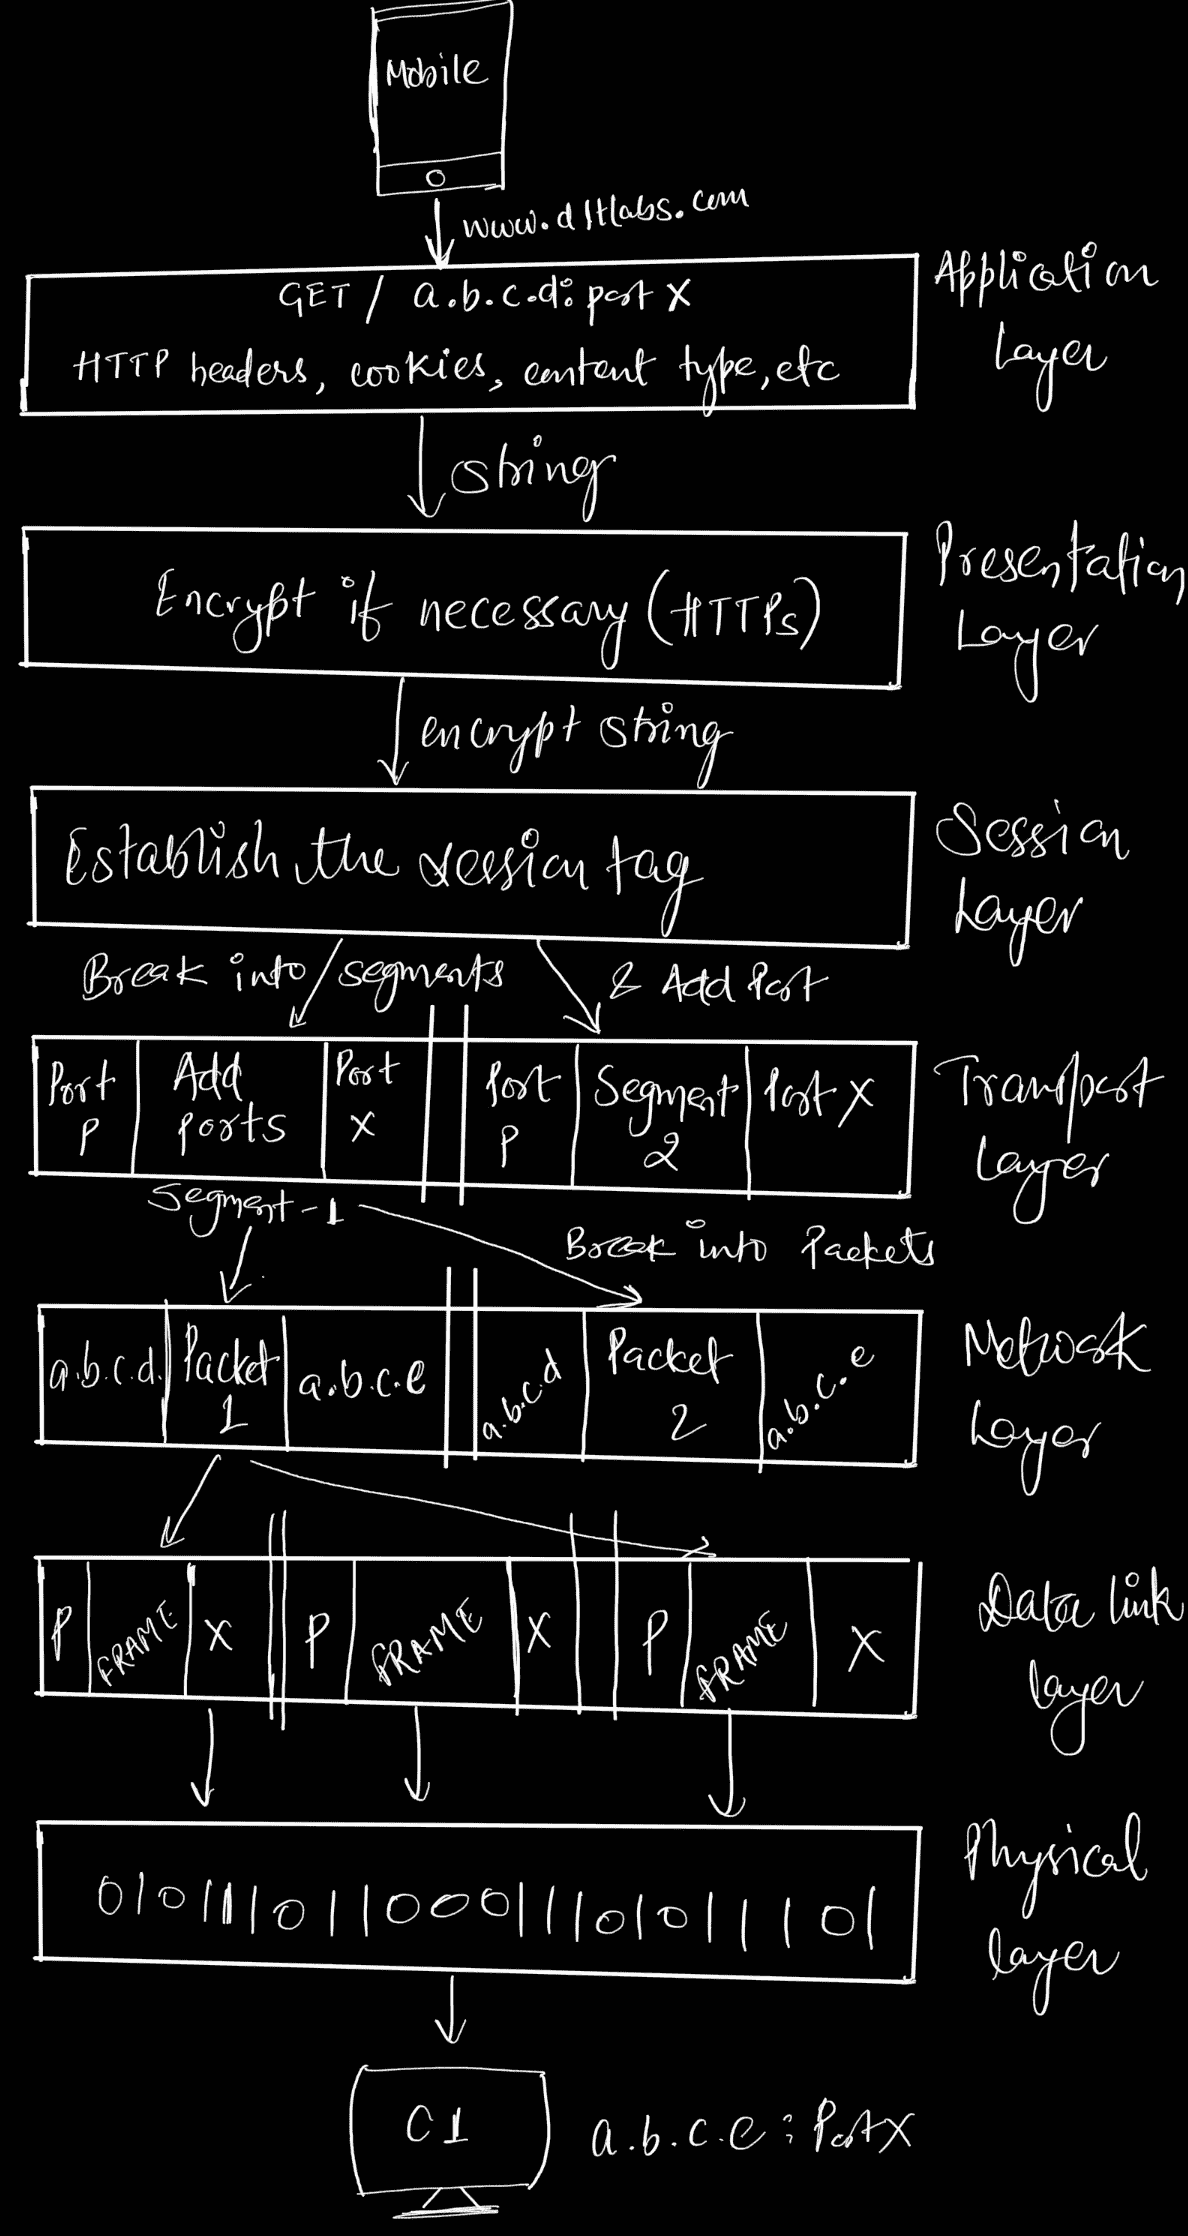 Mobile
www.dltlabs.com
GET / a.b.c.d: port X
HTTP headers, cookies, content type, etc
Application
Layer
string
Encrypt if necessary (HTTPs)
Presentation
Layer
encrypt string
Establish the session tag
Session
Layer
Break into segments & Add Port
Port P
Add ports
Port X
Port P
Segment 2
Port X
Transport
Layer
Segment-1
Break into Packets
a.b.c.d.
Packet 1
a.b.c.e
a.b.c.d
Packet 2
a.b.c.e
Network
Layer
P FRAME X P FRAME X P FRAME X
Data link
layer
0101111011000111010111101
Physical
layer
C1
a.b.c.e : Port X